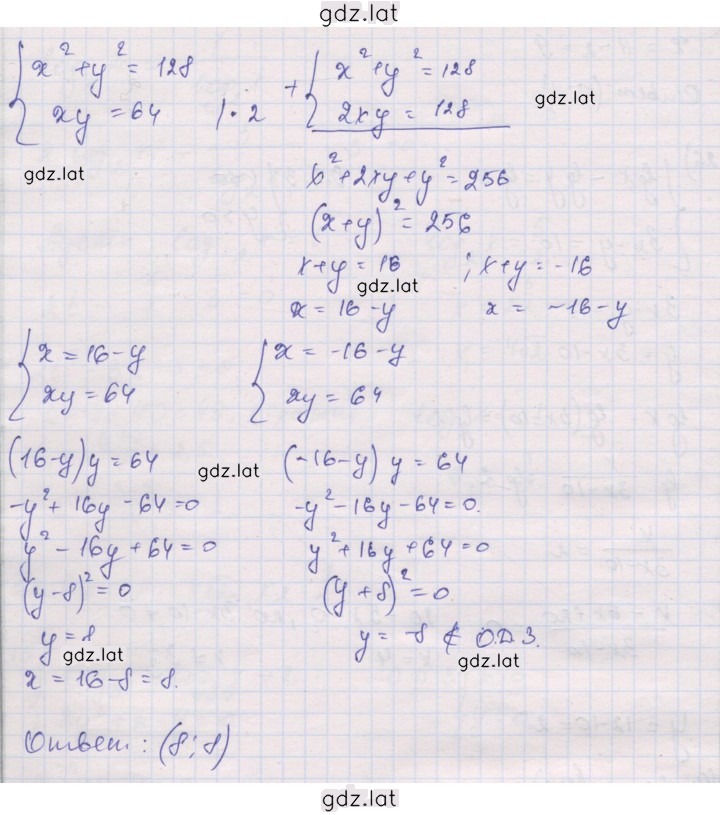 gdz.lat
{ x² + y² = 128
xy = 64 | · 2
+ { x² + y² = 128
2xy = 128
gdz.lat
gdz.lat
x² + 2xy + y² = 256
(x+y)² = 256
x+y = 16 ; x+y = -16
gdz.lat
x = 16 - y x = -16 - y
{ x = 16 - y
xy = 64
{ x = -16 - y
xy = 64
(16-y)y = 64 gdz.lat (-16-y) y = 64
-y² + 16y - 64 = 0 -y² - 16y - 64 = 0.
y² - 16y + 64 = 0 y² + 16y + 64 = 0
(y-8)² = 0 (y+8)² = 0
y = 8 y = -8 ∉ О.Д.З.
gdz.lat gdz.lat
x = 16 - 8 = 8.
Ответ: (8; 8)
gdz.lat